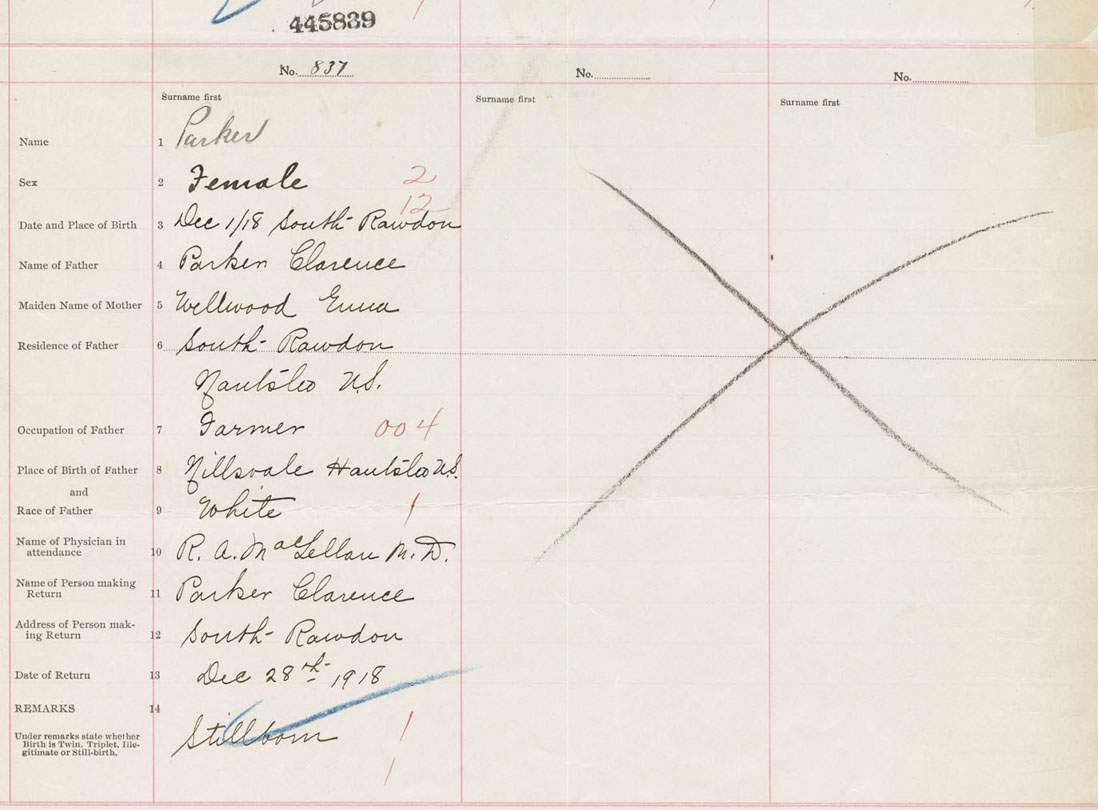 445839
No. 837
No.
No.
Surname first
Surname first
Surname first
Name 1 Parker
Sex 2 Female 2
12
Date and Place of Birth 3 Dec 1/18 South Rawdon
Name of Father 4 Parker Clarence
Maiden Name of Mother 5 Wellwood Enna
Residence of Father 6 South Rawdon
Hants Co N.S.
Occupation of Father 7 Farmer 004
Place of Birth of Father 8 Hillsvale Hants Co N.S.
and
Race of Father 9 White 1
Name of Physician in
attendance 10 R. A. MacLellan M.D.
Name of Person making
Return 11 Parker Clarence
Address of Person mak-
ing Return 12 South Rawdon
Date of Return 13 Dec 28th 1918
REMARKS 14
Under remarks state whether
Birth is Twin, Triplet, Ille-
gitimate or Still-birth.
Stillborn 1
1